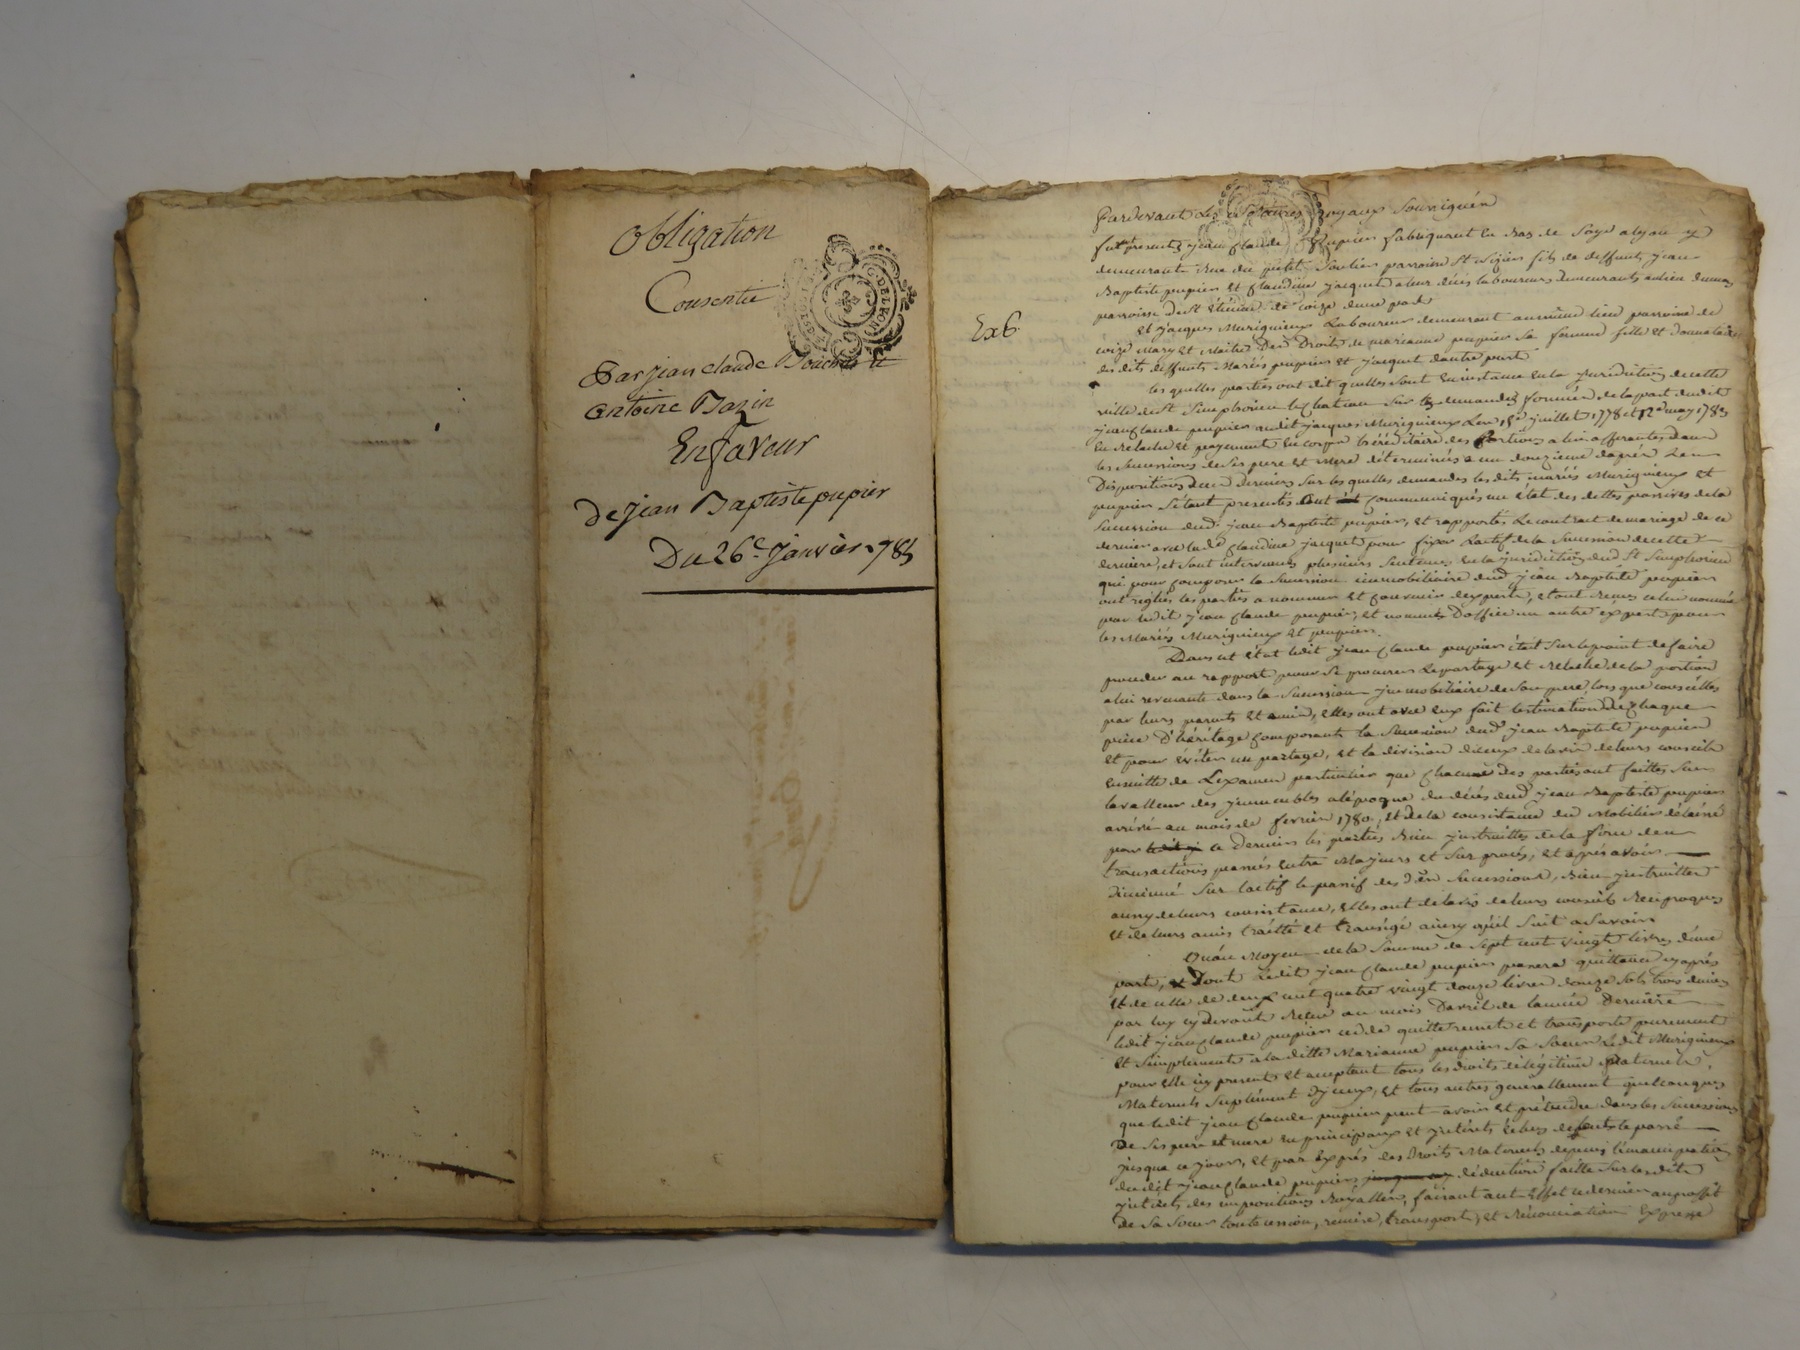 Obligation
Consentie
Par jean claude et
antoine Bazin
En faveur
De jean Baptiste pupier
Du 26e. janvier 178
G. DE LYON
Ex 6
Pardevant Les Notaires royaux Soussignés
fut présent jean Claude pupier fabriquant en Bas de Soye a lyon y
demeurant Rue du petit Soulier parroisse St Nizier fils de deffunts jean
Baptiste pupier et Claudine jacquet a leur déces laboureurs demeurants au lieu
parroisse de St Etienne de Coize d'une part
Et jacques Murigneux Laboureur demeurant au même lieu parroisse de
Coize Mary et Maitre Des Droits de marianne pupier Sa femme fille et Donnataire
des dits deffunts Mariés pupier et jacquet d'autre part
les quelles parties ont dit qu'elles Sont en instance en la jurisdiction de cette
ville de St Simphorien le Chateau Sur les demandes formées de la part dudit
jean Claude pupier audit jacques Murigneux Les juillet 1778 et 12e may 1783
En Relache et payement en corps héréditaire des portions a lui afferantes dans
les Successions de Ses pere et Mere déterminées a un douzieme d'apres Les
Dispositions de ces Derniers Sur les quelles demandes les dits mariés Murigneux et
pupier S'étant presentés ont communiqués un état des dettes passives de la
Succession dud. jean Baptiste pupier, et rapportés Le contract de mariage de ce
dernier avec lad. Claudine jacquet pour fixer L'actif de la Succession de cette
derniere, et Sont intervenues plusieurs Sentences en la jurisdiction dud. St Simphorien
qui pour composer la Succession immobiliaire dud. jean Baptiste pupier
ont réglés les parties a nommer et convenir d'experts, et ont Remis celui nommé
par ledit jean Claude pupier, et nommés D'office un autre expert pour
les Mariés Murigneux et pupier.
Dans cet état ledit jean Claude pupier étoit Sur le point de faire
proceder au rapport pour Se procurer Le partage et Relache de la portion
a lui revenante dans la Succession jmmobiliaire de Son pere, lors que conseillés
par leurs parents et amis, elles ont avec eux fait l'estimation de chaque
piece D'héritage composant la Succession dud. jean Baptiste pupier
Et pour éviter un partage, et la division d'iceux de l'avis de leurs conseils
Ensuitte de L'examen particulier que chacune des parties ont faittes Sur
la valleur des jmmeubles a l'époque du décés dud. jean Baptiste pupier
arrivé au mois de fevrier 1780, et de la consistance du Mobilier délaissé
par ce Dernier les parties Bien jnstruittes de la force des
transactions passés entre Majeurs et Sur procés, et aprés avoir
Discuté Sur l'actif le passif des Successions, Bien jnstruittes
aussy de leurs consistance, elles ont de l'avis de leurs conseils Réciproques
et de leurs amis traitté et transigé ainsy qu'il Suit a Savoir
Qu'au Moyen de la Somme de Sept cent vingt livres d'une
part, Dont Ledit jean Claude pupier passera quittance cy aprés
Et de celle de deux cent quatre vingt douze livres douze Sols trois deniers
par luy cy devant Reçue au mois D'avril de l'année Derniere
ledit jean Claude pupier cede quitte remet et transporte purement
Et Simplement a la ditte Marianne pupier Sa Soeur Ledit Murigneux
pour elle icy present et acceptant tous les droits de légitime paternels,
Maternels Suplément D'jceux, et tous autres generallement quelconques
que ledit jean Claude pupier peut avoir et prétendre dans les Successions
De Ses pere et mere en principaux et jnterêts échus depuis le passé
jusque ce jour, Et par Exprés les Droits Maternels depuis l'émancipation
dudit jean Claude pupier déduction faitte Sur les dits
jnterêts des impositions Royalles, faisant a cet Effet ce dernier au proffit
De Sa Soeur toute cession, remise, transport, et Rénonciation Expresse